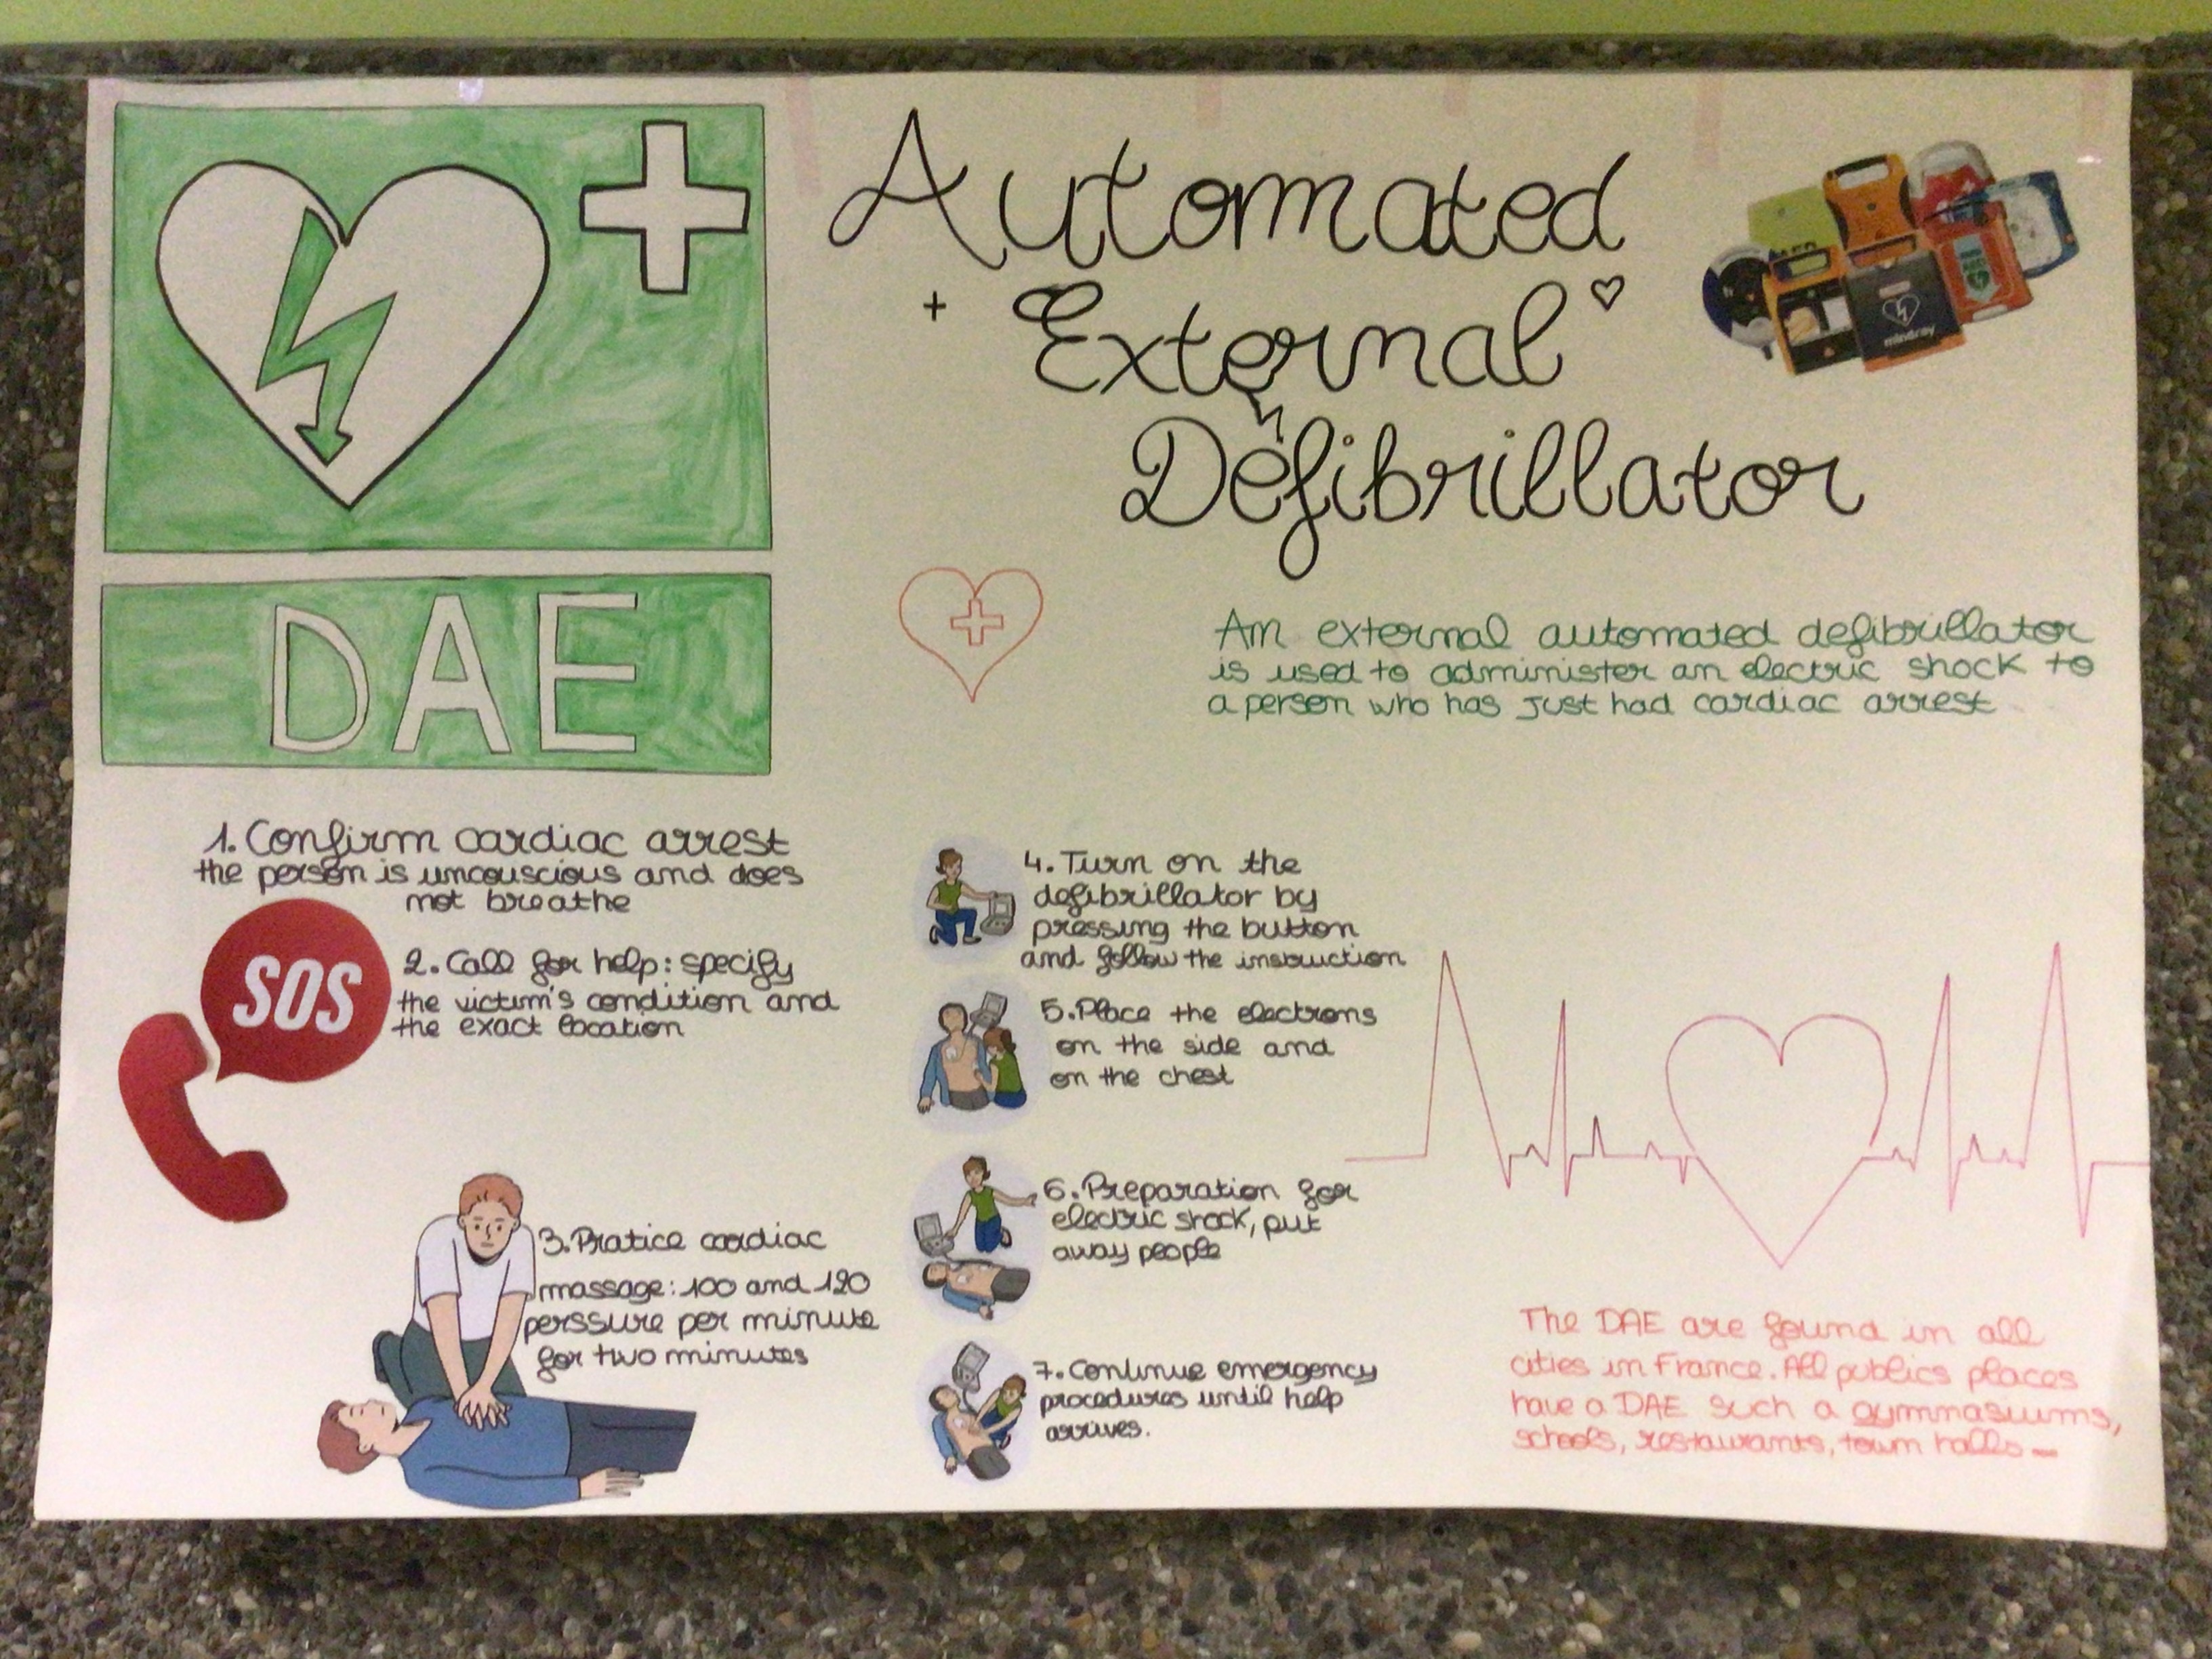 Automated
External
Defibrillator
mindray
DAE
An external automated defibrillator
is used to administer an electric shock to
a person who has just had cardiac arrest
1. Confirm cardiac arrest
the person is uncouscious and does
not breathe
SOS
2. Call for help: specify
the victim's condition and
the exact location
3. Pratice cardiac
massage: 100 and 120
perssure per minute
for two minutes
4. Turn on the
defibrillator by
pressing the button
and follow the instruction
5. Place the electrons
on the side and
on the chest
6. Preparation for
electric shock, put
away people
7. Continue emergency
procedures until help
arrives.
The DAE are found in all
cities in France. All publics places
have a DAE such a gymnasiums,
schools, restaurants, town halls